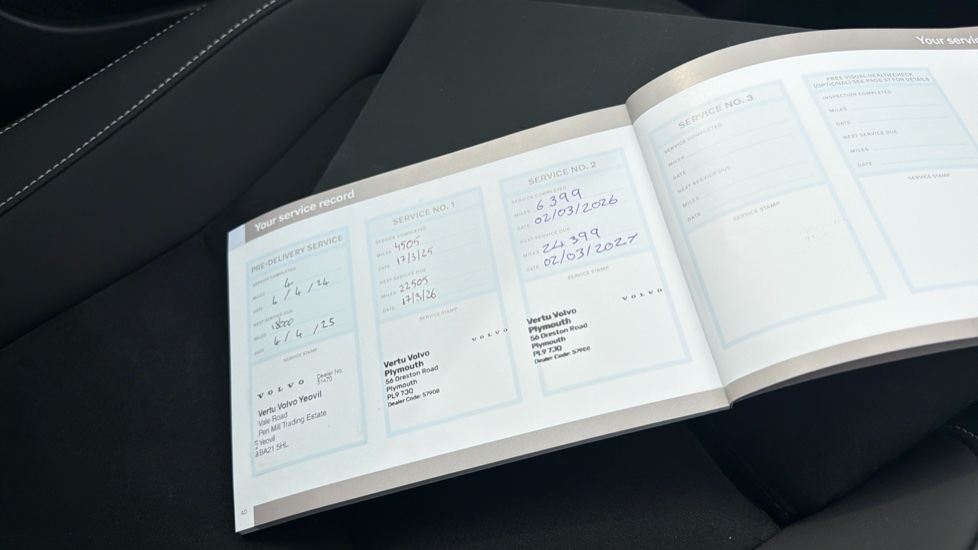 Your service record
PRE-DELIVERY SERVICE
SERVICE COMPLETED
MILES 4
DATE 4/4/24
NEXT SERVICE DUE
MILES 18000
DATE 4/4/25
SERVICE STAMP
VOLVO
Dealer No.
Vertu Volvo Yeovil
Vale Road
Pen Mill Trading Estate
Yeovil
BA21 5HL
40
SERVICE NO. 1
SERVICE COMPLETED
MILES 4505
DATE 17/3/25
NEXT SERVICE DUE
MILES 22505
DATE 17/3/26
SERVICE STAMP
VOLVO
Vertu Volvo
Plymouth
56 Oreston Road
Plymouth
PL9 7JQ
Dealer Code: 57908
SERVICE NO. 2
SERVICE COMPLETED
MILES 6399
DATE 02/03/2026
NEXT SERVICE DUE
MILES 24399
DATE 02/03/2027
SERVICE STAMP
VOLVO
Vertu Volvo
Plymouth
56 Oreston Road
Plymouth
PL9 7JQ
Dealer Code: 57908
SERVICE NO. 3
SERVICE COMPLETED
MILES
DATE
NEXT SERVICE DUE
MILES
DATE
SERVICE STAMP
Your servi
FREE VISUAL HEALTH CHECK
(OPTIONAL) SEE PAGE 37 FOR DETAILS
INSPECTION COMPLETED
MILES
DATE
NEXT SERVICE DUE
MILES
DATE
SERVICE STAMP